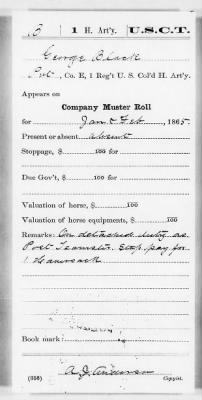 B | 1 H. Art'y. | U.S.C.T.
George Black
Pvt, Co. E, 1 Reg't U. S. Col'd H. Art'y.
Appears on
Company Muster Roll
for Jan & Feb, 1865.
Present or absent absent
Stoppage, $ 100 for
Due Gov't, $ 100 for
Valuation of horse, $ 100
Valuation of horse equipments, $ 100
Remarks: On detached duty as
Post Teamster. Stop pay for
1 Haversack
Book mark:
(358) A. J. Anderson
Copyist.